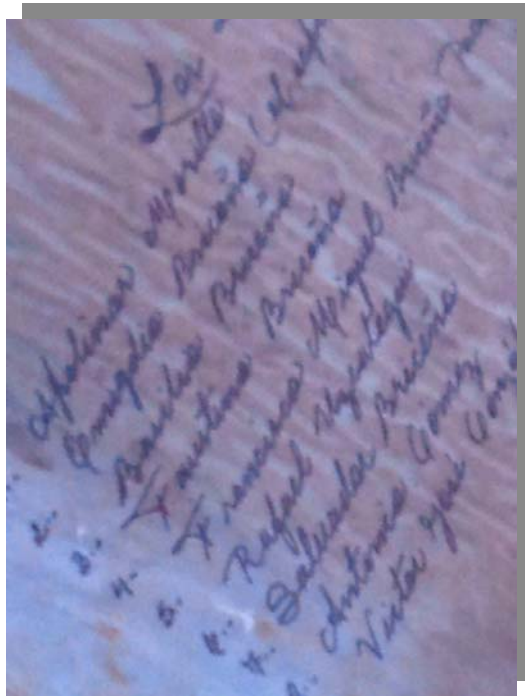 Los
Apolinar Morillo
2.- Emigdio Briceño
3.- Basilio Briceño
4.- Faustino Briceño
5.- Francisco Miguel Briceño
6.- Rafael Uzcategui
7.- Salvador Briceño
Antonio Gomez
Victor